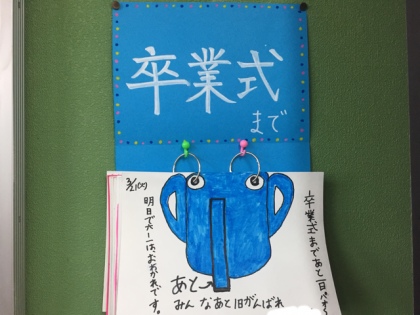 卒業式
まで
卒業式まであと一日です
あと→
みんなあと1日がんばれ
明日で六一は、おわかれです。